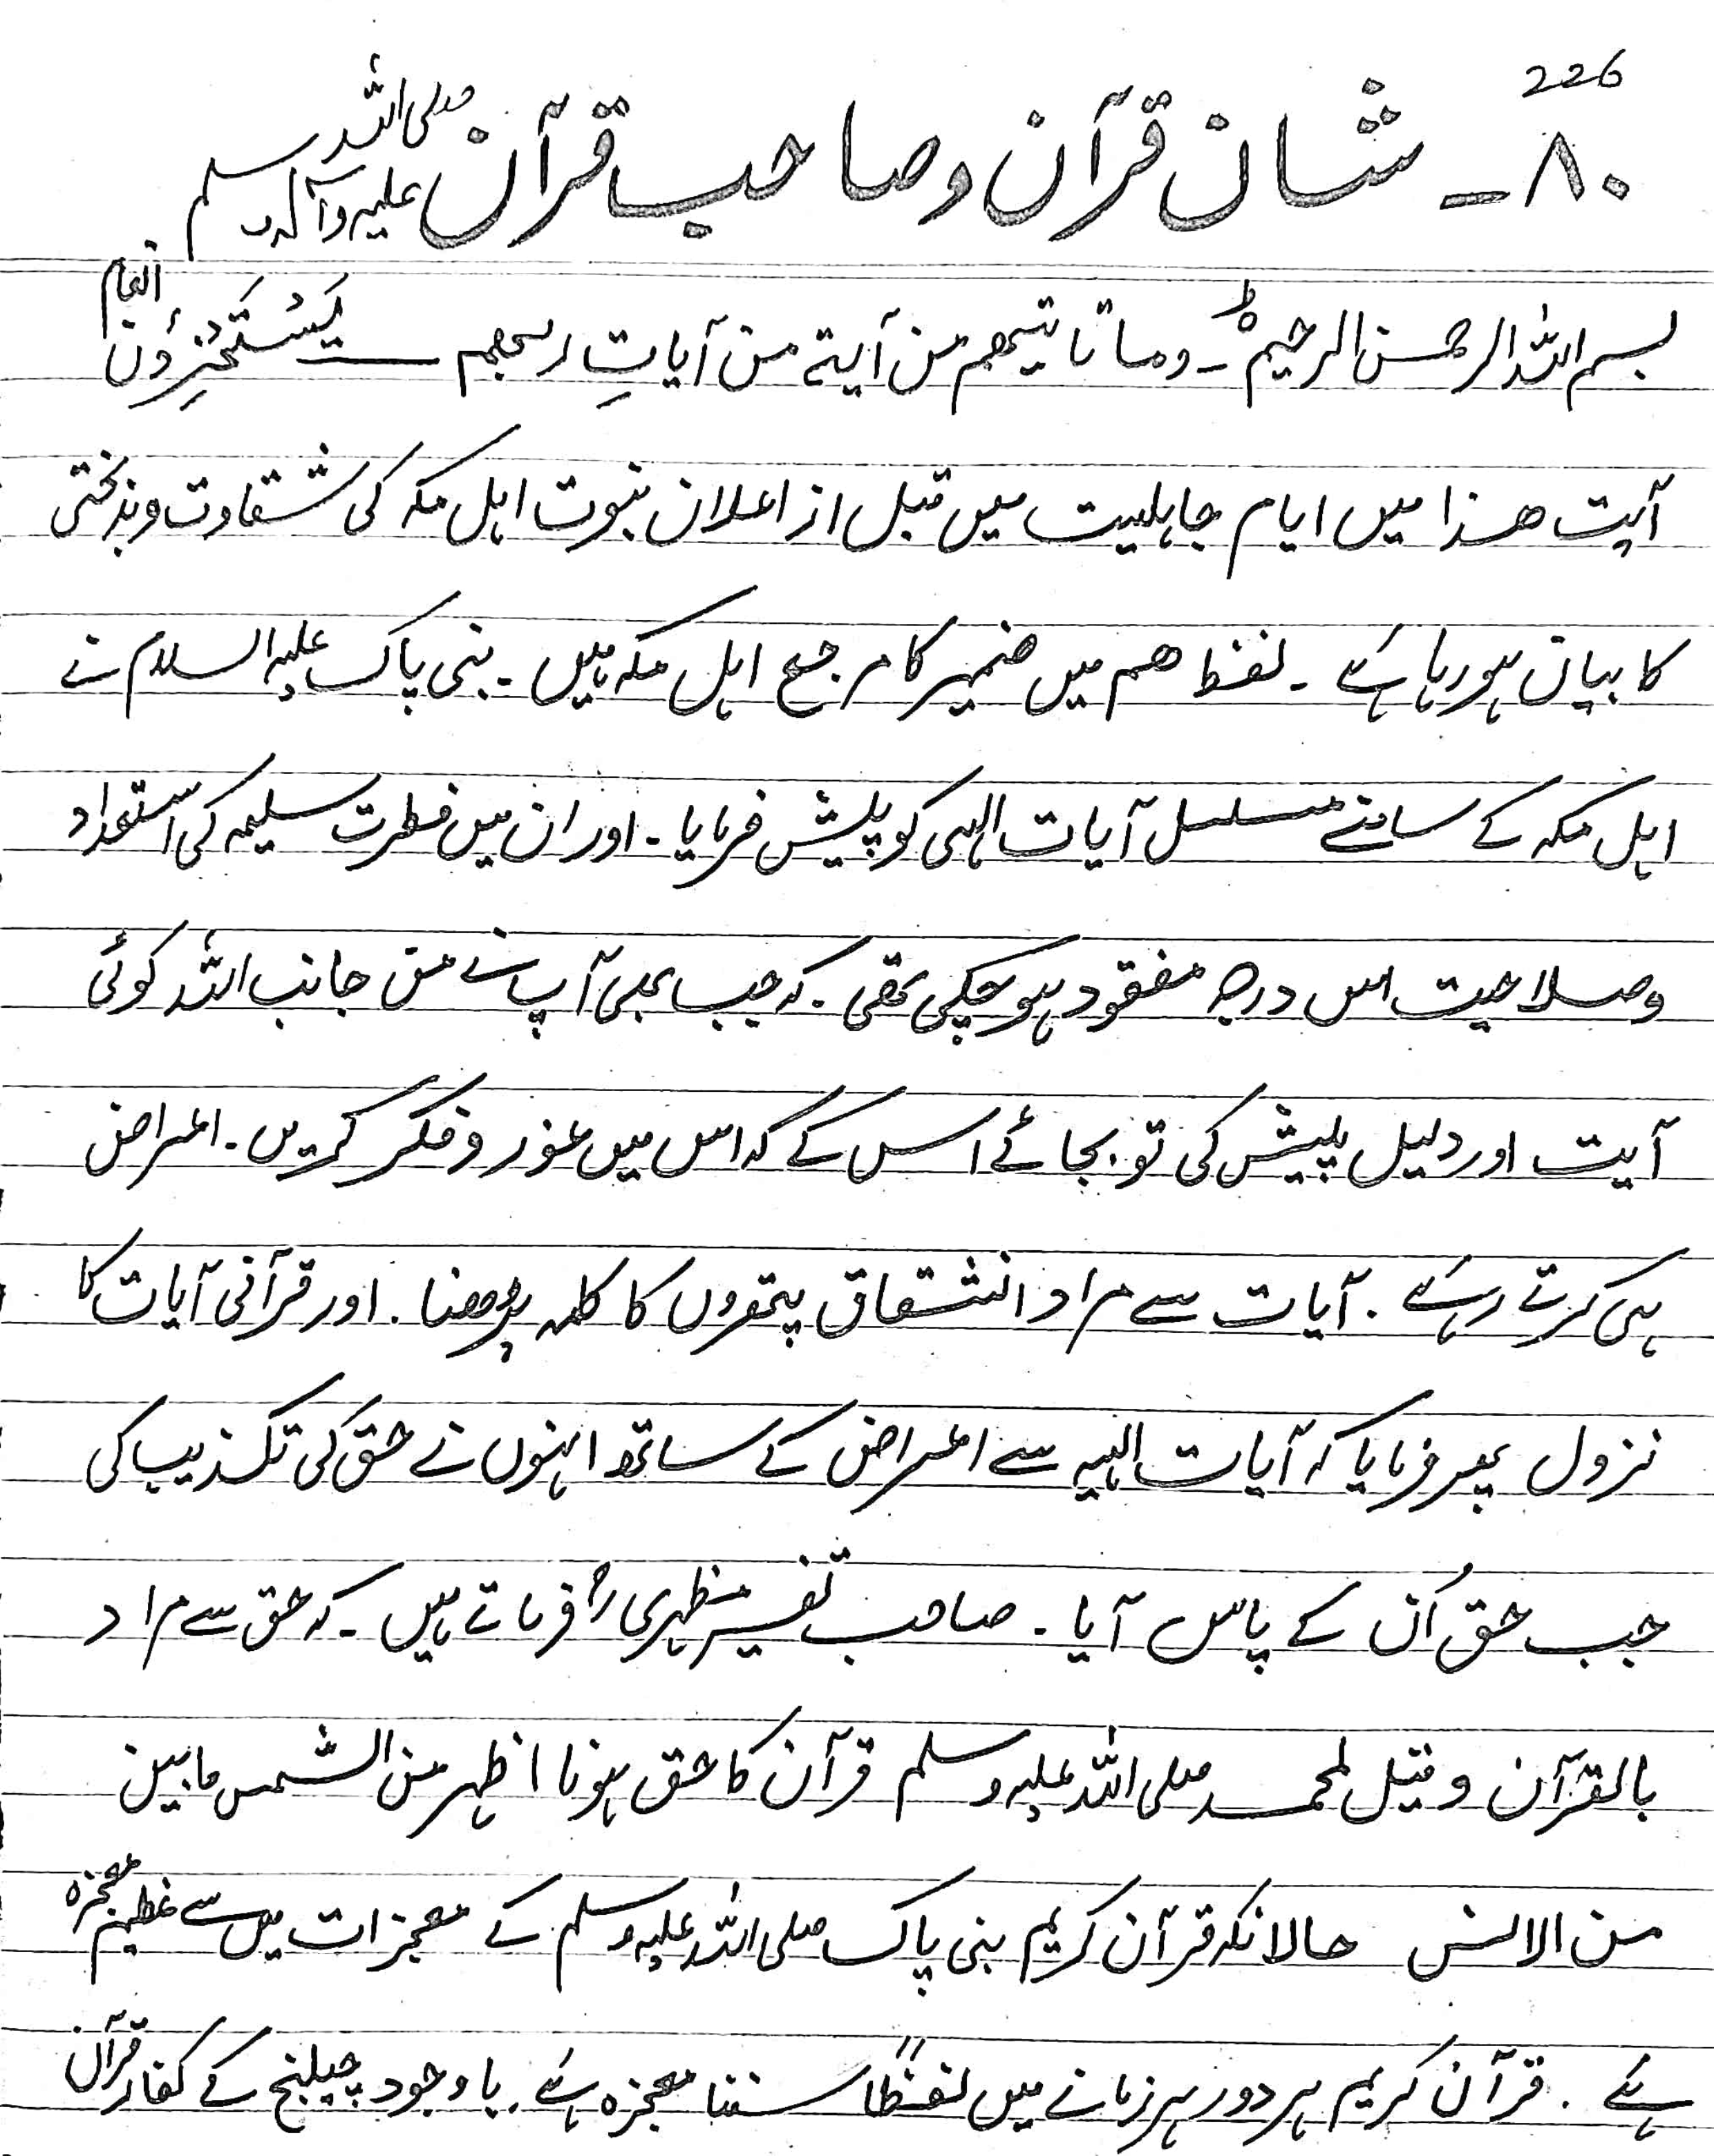 226
۸۰ ـ شان قرآن و صاحب قرآن صلی اللہ علیہ وآلہ وسلم
بسم اللہ الرحمن الرحیم ط ـ وما تاتیھم من آیتہ من آیاتِ ربھم ــ یَسْتَھْزِؤُن انعام
آیت ھذا میں ایام جاہلیت میں قبل از اعلان نبوت اہل مکہ کی شقاوت و بدبختی
کا بیان ہو رہا ہے ۔ لفظ ھم میں ضمیر کا مرجع اہل مکہ ہیں ۔ نبی پاک علیہ السلام نے
اہل مکہ کے سامنے مسلسل آیات الہی کو پیش فرمایا ۔ اور ان میں فطرت سلیمہ کی استعداد
و صلاحیت اس درجہ مفقود ہو چکی تھی ۔ کہ جب بھی آپ نے من جانب اللہ کوئی
آیت اور دلیل پیش کی تو بجائے اس کے کہ اس میں غور و فکر کریں ۔ اعراض
ہی کرتے رہے ۔ آیات سے مراد انشقاق پتھروں کا کلمہ پڑھنا ۔ اور قرآنی آیات کا
نزول پھر فرمایا کہ آیات الہیہ سے اعراض کے ساتھ انہوں نے حق کی تکذیب کی
جب حق اُن کے پاس آیا ۔ صاحب تفسیر مظہری رح فرماتے ہیں ۔ کہ حق سے مراد
بالقرآن و قیل لمحمد صلی اللہ علیہ وسلم قرآن کا حق ہونا اظہر من الشمس مابین
من الانس حالانکہ قرآن کریم نبی پاک صلی اللہ علیہ وسلم کے معجزات میں سے عظیم معجزہ
ہے ۔ قرآن کریم ہر دور ہر زمانے میں لفظًا سننا معجزہ ہے ۔ باوجود چیلنج کے کفار قرآن